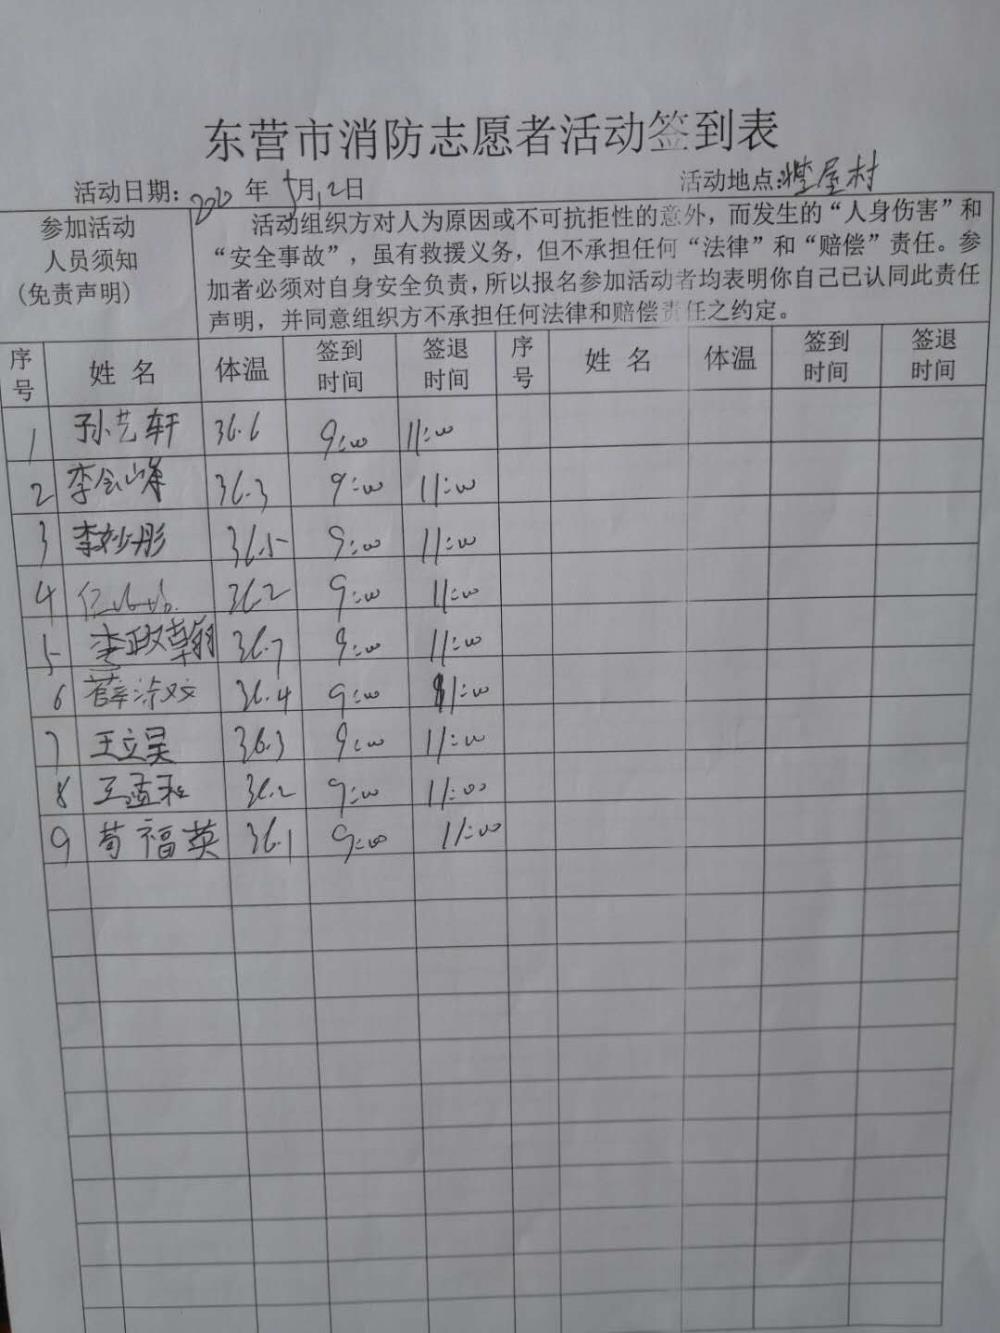 东营市消防志愿者活动签到表
活动日期: 2020 年 5月12日 活动地点: 屋村
参加活动人员须知(免责声明)
活动组织方对人为原因或不可抗拒性的意外，而发生的“人身伤害”和
“安全事故”，虽有救援义务，但不承担任何“法律”和“赔偿”责任。参
加者必须对自身安全负责，所以报名参加活动者均表明你自己已认同此责任
声明，并同意组织方不承担任何法律和赔偿责任之约定。
序号 姓名 体温 签到时间 签退时间 序号 姓名 体温 签到时间 签退时间
1 孙艺轩 36.6 9:00 11:00
2 李会峰 36.3 9:00 11:00
3 李妙彤 36.5 9:00 11:00
4 36.2 9:00 11:00
5 李政翰 36.7 9:00 11:00
6 薛 36.4 9:00 11:00
7 王立昊 36.3 9:00 11:00
8 王孟和 36.2 9:00 11:00
9 荀福英 36.1 9:00 11:00